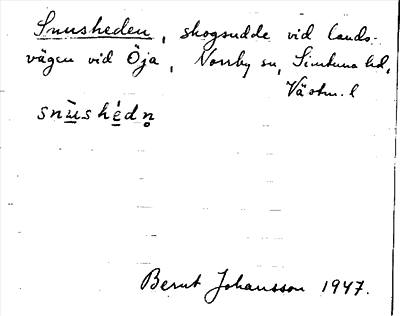 Snusheden, skogsudde vid lands-
vägen vid Öja, Norrby sn, Simtuna hd,
Västm. l
snùshédn̥
Bernt Johansson 1947.